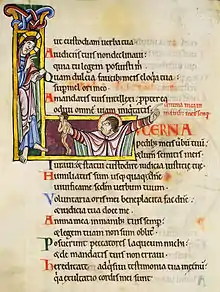 ut custodiam uerba tua
A iudiciis tuis non declinaui:
quia tu legem posuisti m
Quam dulcia faucib; meis eloquia tua:
sup mel ori meo
A mandatis tuis intellexi: ppterea
odiui omnē uiam iniquitatis
Anima mea in
manib; meis semp
LUCERNA
pedib; meis uerbū tuū
& lumen semitis meis
Iuraui & statui custodire iudicia iusticię tuę
Humiliatus sum usq;quaq; dñe
uiuifica me sedm uerbum tuum
Voluntaria oris mei beneplacita fac dñe
& iudicia tua doce me
Anima mea in manib; meis semp
& legem tuam non sum oblit
Posuerunt peccatores laqueum michi
& de mandatis tuis non erraui
Hereditate adquisiui testimonia tua in
quia exultatio cordis mei sunt